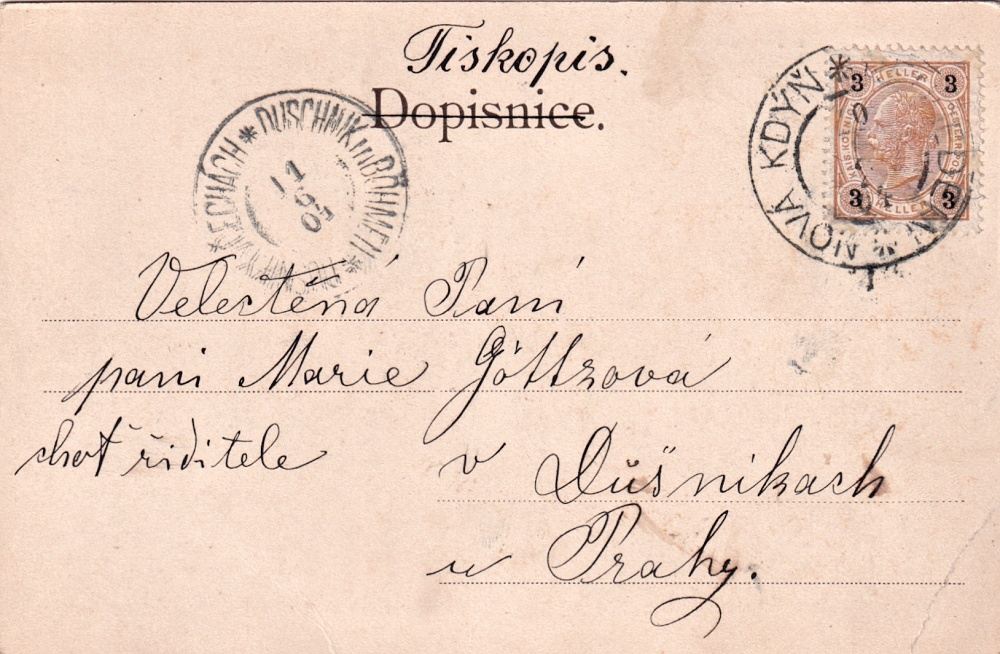 Tiskopis.
Dopisnice.
DUSCHNIK in BÖHMEN
ČECHÁCH
NOVÁ KDÝŇ
3 HELLER 3
3 HELLER 3
Velectěná Paní
paní Marie Göttzová
choť řiditele
v Dušnikach
u Prahy.